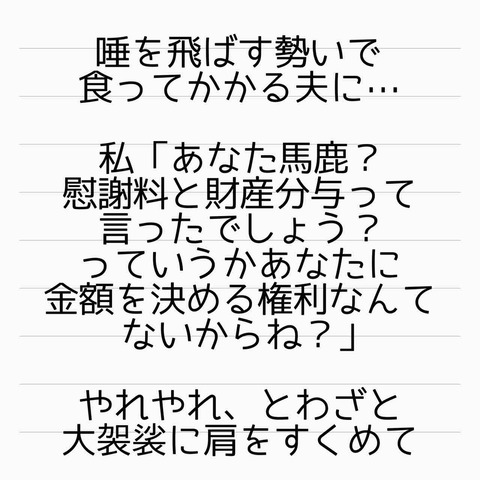 唾を飛ばす勢いで
食ってかかる夫に…
私「あなた馬鹿？
慰謝料と財産分与って
言ったでしょう？
っていうかあなたに
金額を決める権利なんて
ないからね？」
やれやれ、とわざと
大袈裟に肩をすくめて